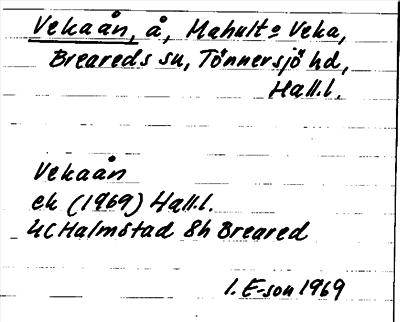 Vekaån, å, Mahult o Veka,
Breareds sn, Tönnersjö hd,
Hall.l.
Vekaån
ek (1969) Hall.l.
4C Halmstad 8h Breared
I. E-son 1969